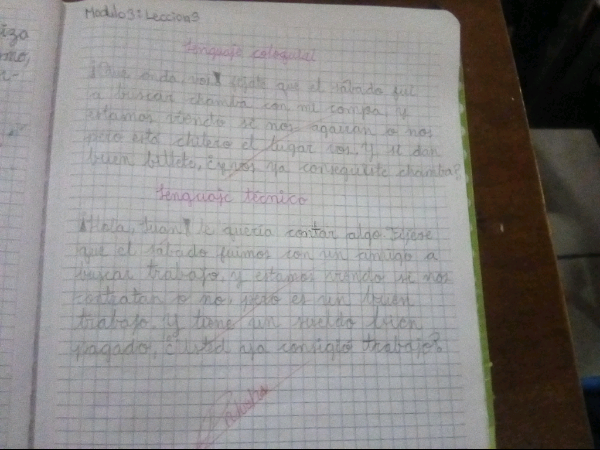 Modulo 3: Leccion 3
Lenguaje coloquial
¡Que onda, vos! fijate que el sábado fui
a buscar chamba con mi compa, y
estamos viendo si nos agarran o nos
pero está chilero el lugar vos, Y si dan
buen billete, ¿y vos ya conseguiste chamba?
Lenguaje técnico
¡Hola, Juan! le quería contar algo Fijese
que el sábado fuimos con un amigo a
buscar trabajo, y estamos viendo si nos
contratan o nos pero es un buen
trabajo. Y tiene un sueldo bien
pagado, ¿usted ya consiguió trabajo?
iza